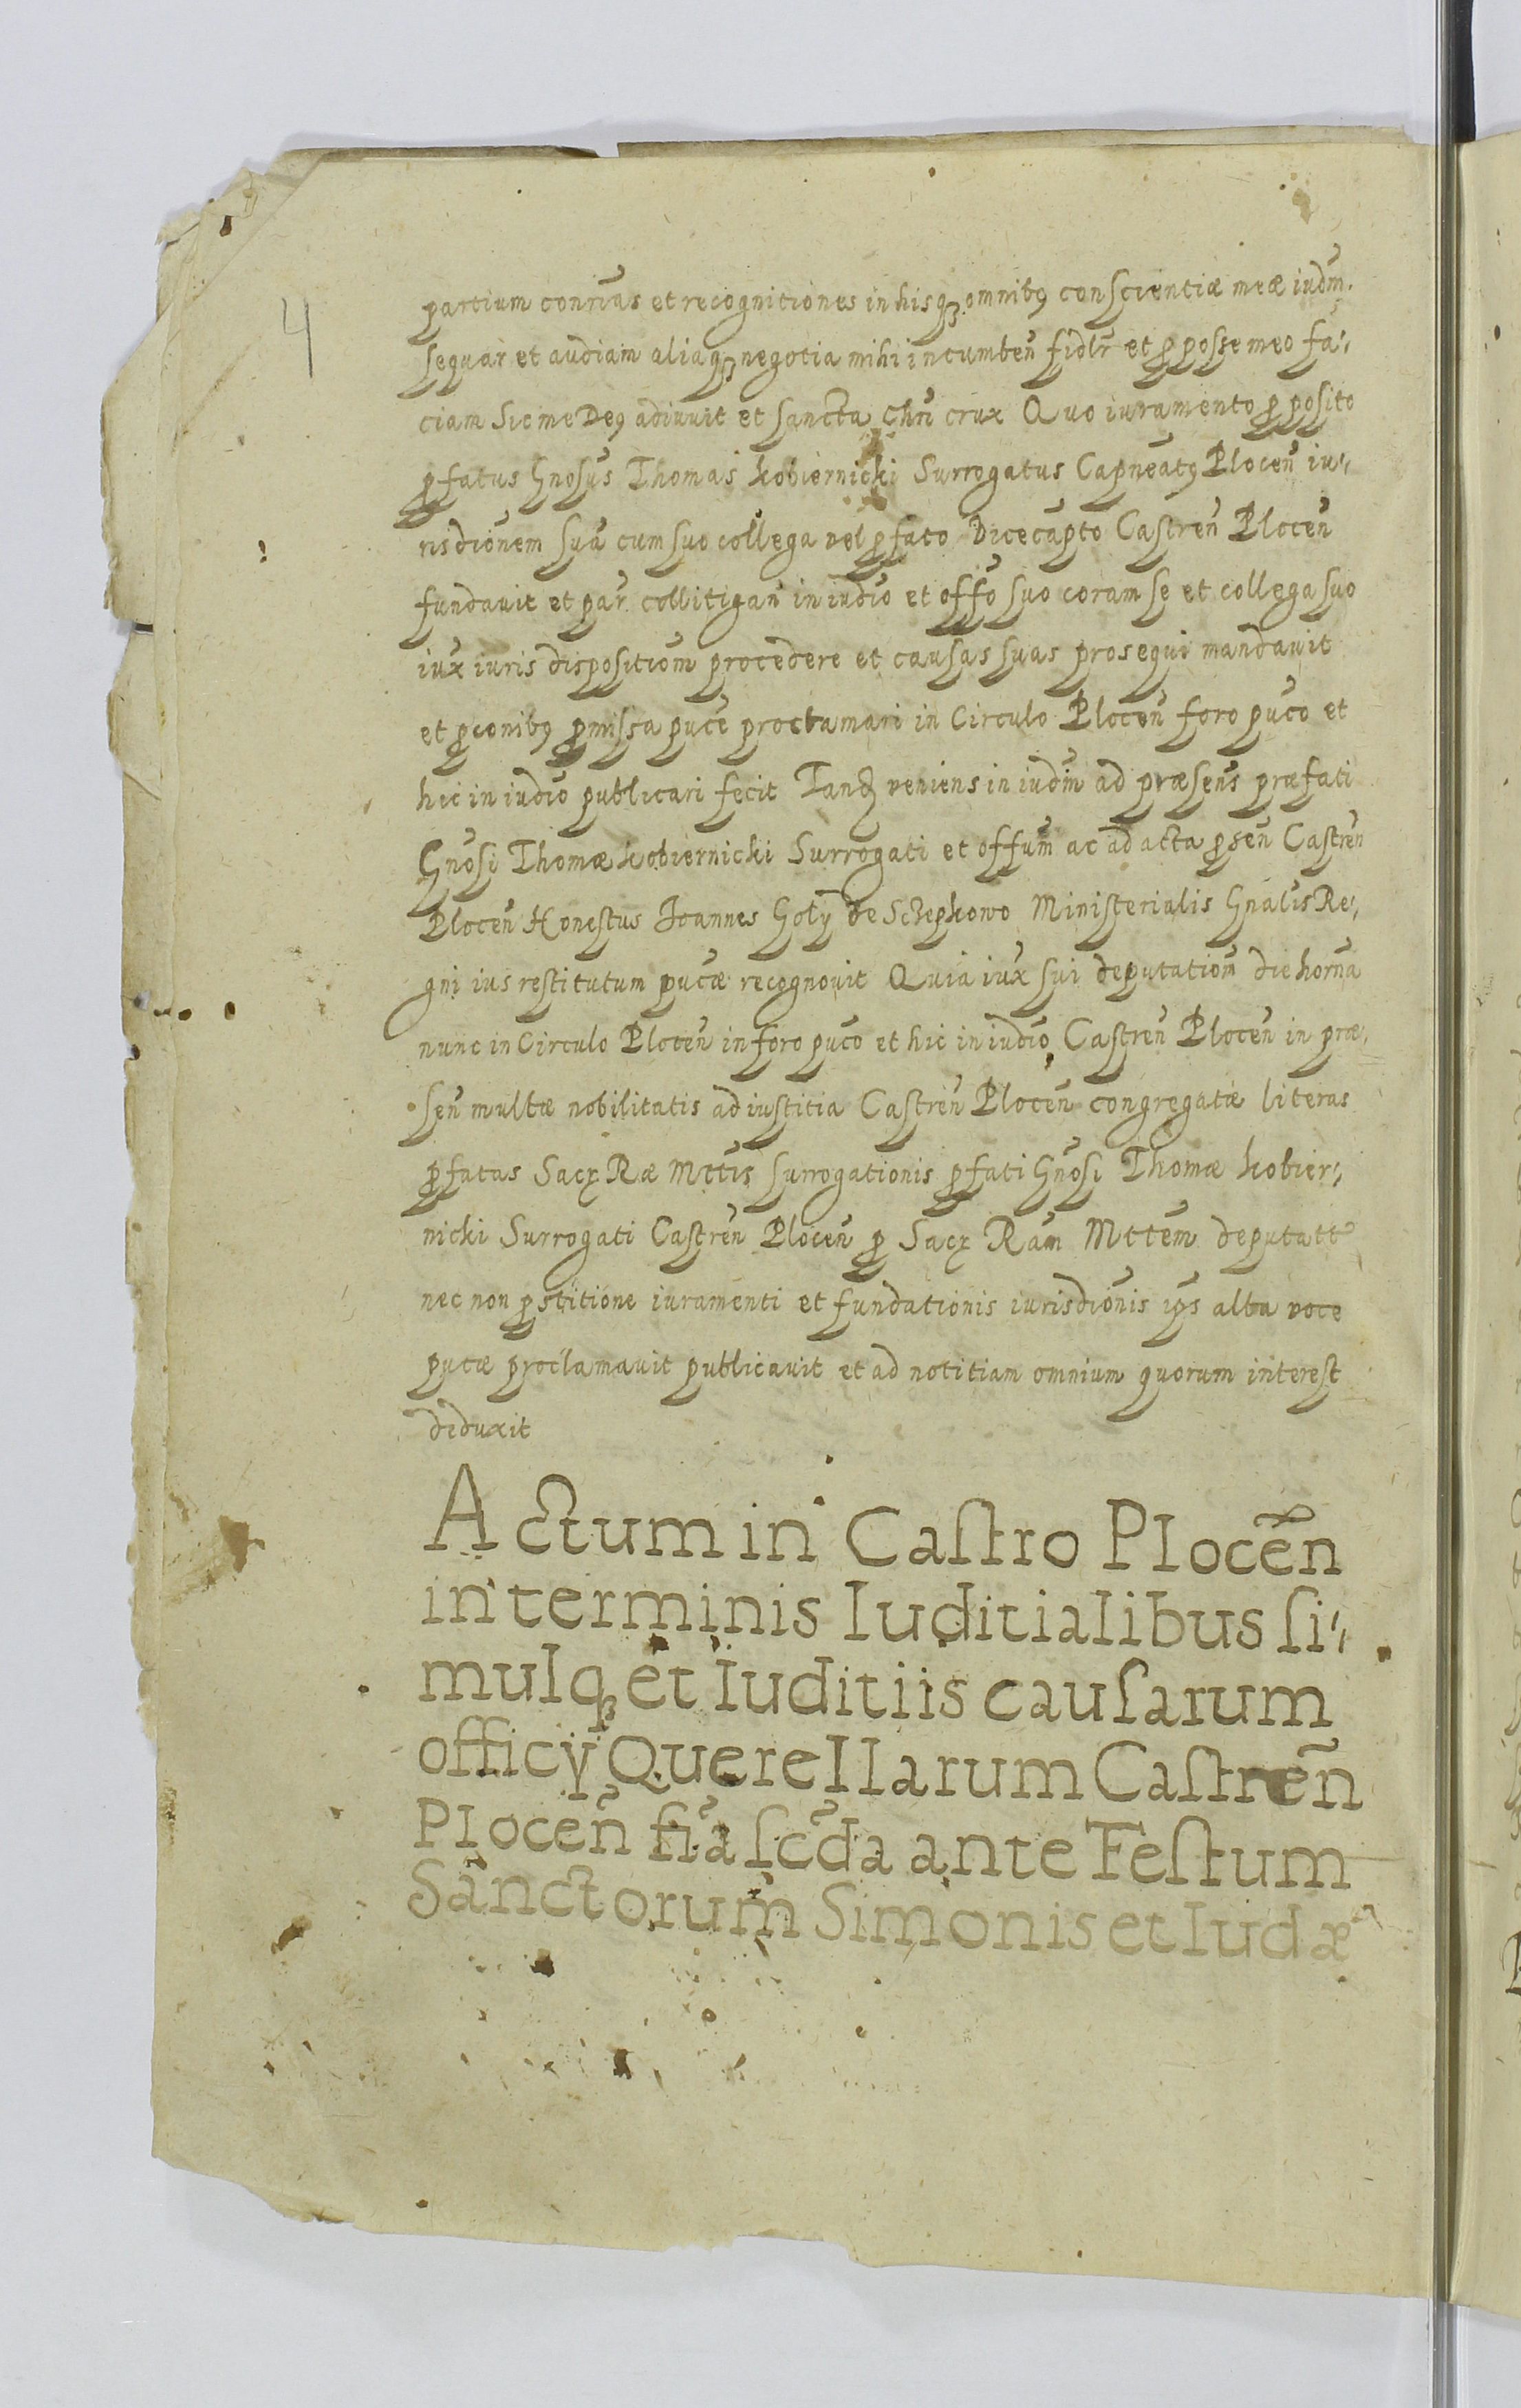 4
partium conrias et recognitiones in hisqȝ omnibꝯ conscientiæ meæ iudm̃
sequar et audiam aliaqȝ negotia mihi incumben̄ fidlr̄ et ꝓ posse meo fa-
ciam Sic me Deꝯ adiuvit et sancta Chri crux Quo iuramento ꝓposito
p̱fatus Gnosus Thomas Kobiernicki Surrogatus Capneatꝯ Plocen̄ iu-
risdionem suā cum suo collega vel p̱fato Vicecapto Castren̄ Plocen̄
fundauit et par collitigan̄ in iudio et offo suo coram se et collega suo
iux iuris dispositiom̄ procedere et causas suas prosequi mandauit
et p̱conibꝯ p̱missa puce proclamari in Circulo Plocen̄ foro puco et
hic in iudio publicari fecit Tandꝫ veniens in iudm̄ ad præsens præfati
Gnosi Thomæ Kobiernicki Surrogati et offum̄ ac ad acta p̱sen̄ Castren̄
Plocen̄ Honestus Ioannes Goly de Sczepkowo Ministerialis Gnalis Re-
gni ius restitutum pucæ recognovit Quia iux sui deputatiom̄ die horna
nunc in Circulo Plocen̄ in foro puco et hic in iudio Castren̄ Plocen̄ in præ-
sen̄ multæ nobilitatis ad iustitia Castren̄ Plocen̄ congregatæ literas
p̱fatas Sacꝝ Ræ Mttis surrogationis p̱fati Gnosi Thomæ Kobier-
nicki Surrogati Castren̄ Plocen̄ p̱ Sacꝝ Ram̄ Mttem̄ deputatt
nec non p̱stitione iuramenti et fundationis iurisdionis ips̄ alta voce
pucæ proclamavit publicavit et ad notitiam omnium quorum interest
diduxit
Actum in Castro Plocen̄
in terminis Iuditialibus si-
mulqȝ et Iuditiis causarum
officÿ Querellarum Castren̄
Plocen̄ fria scda ante Festum
Sanctorum Simonis et Iudæ